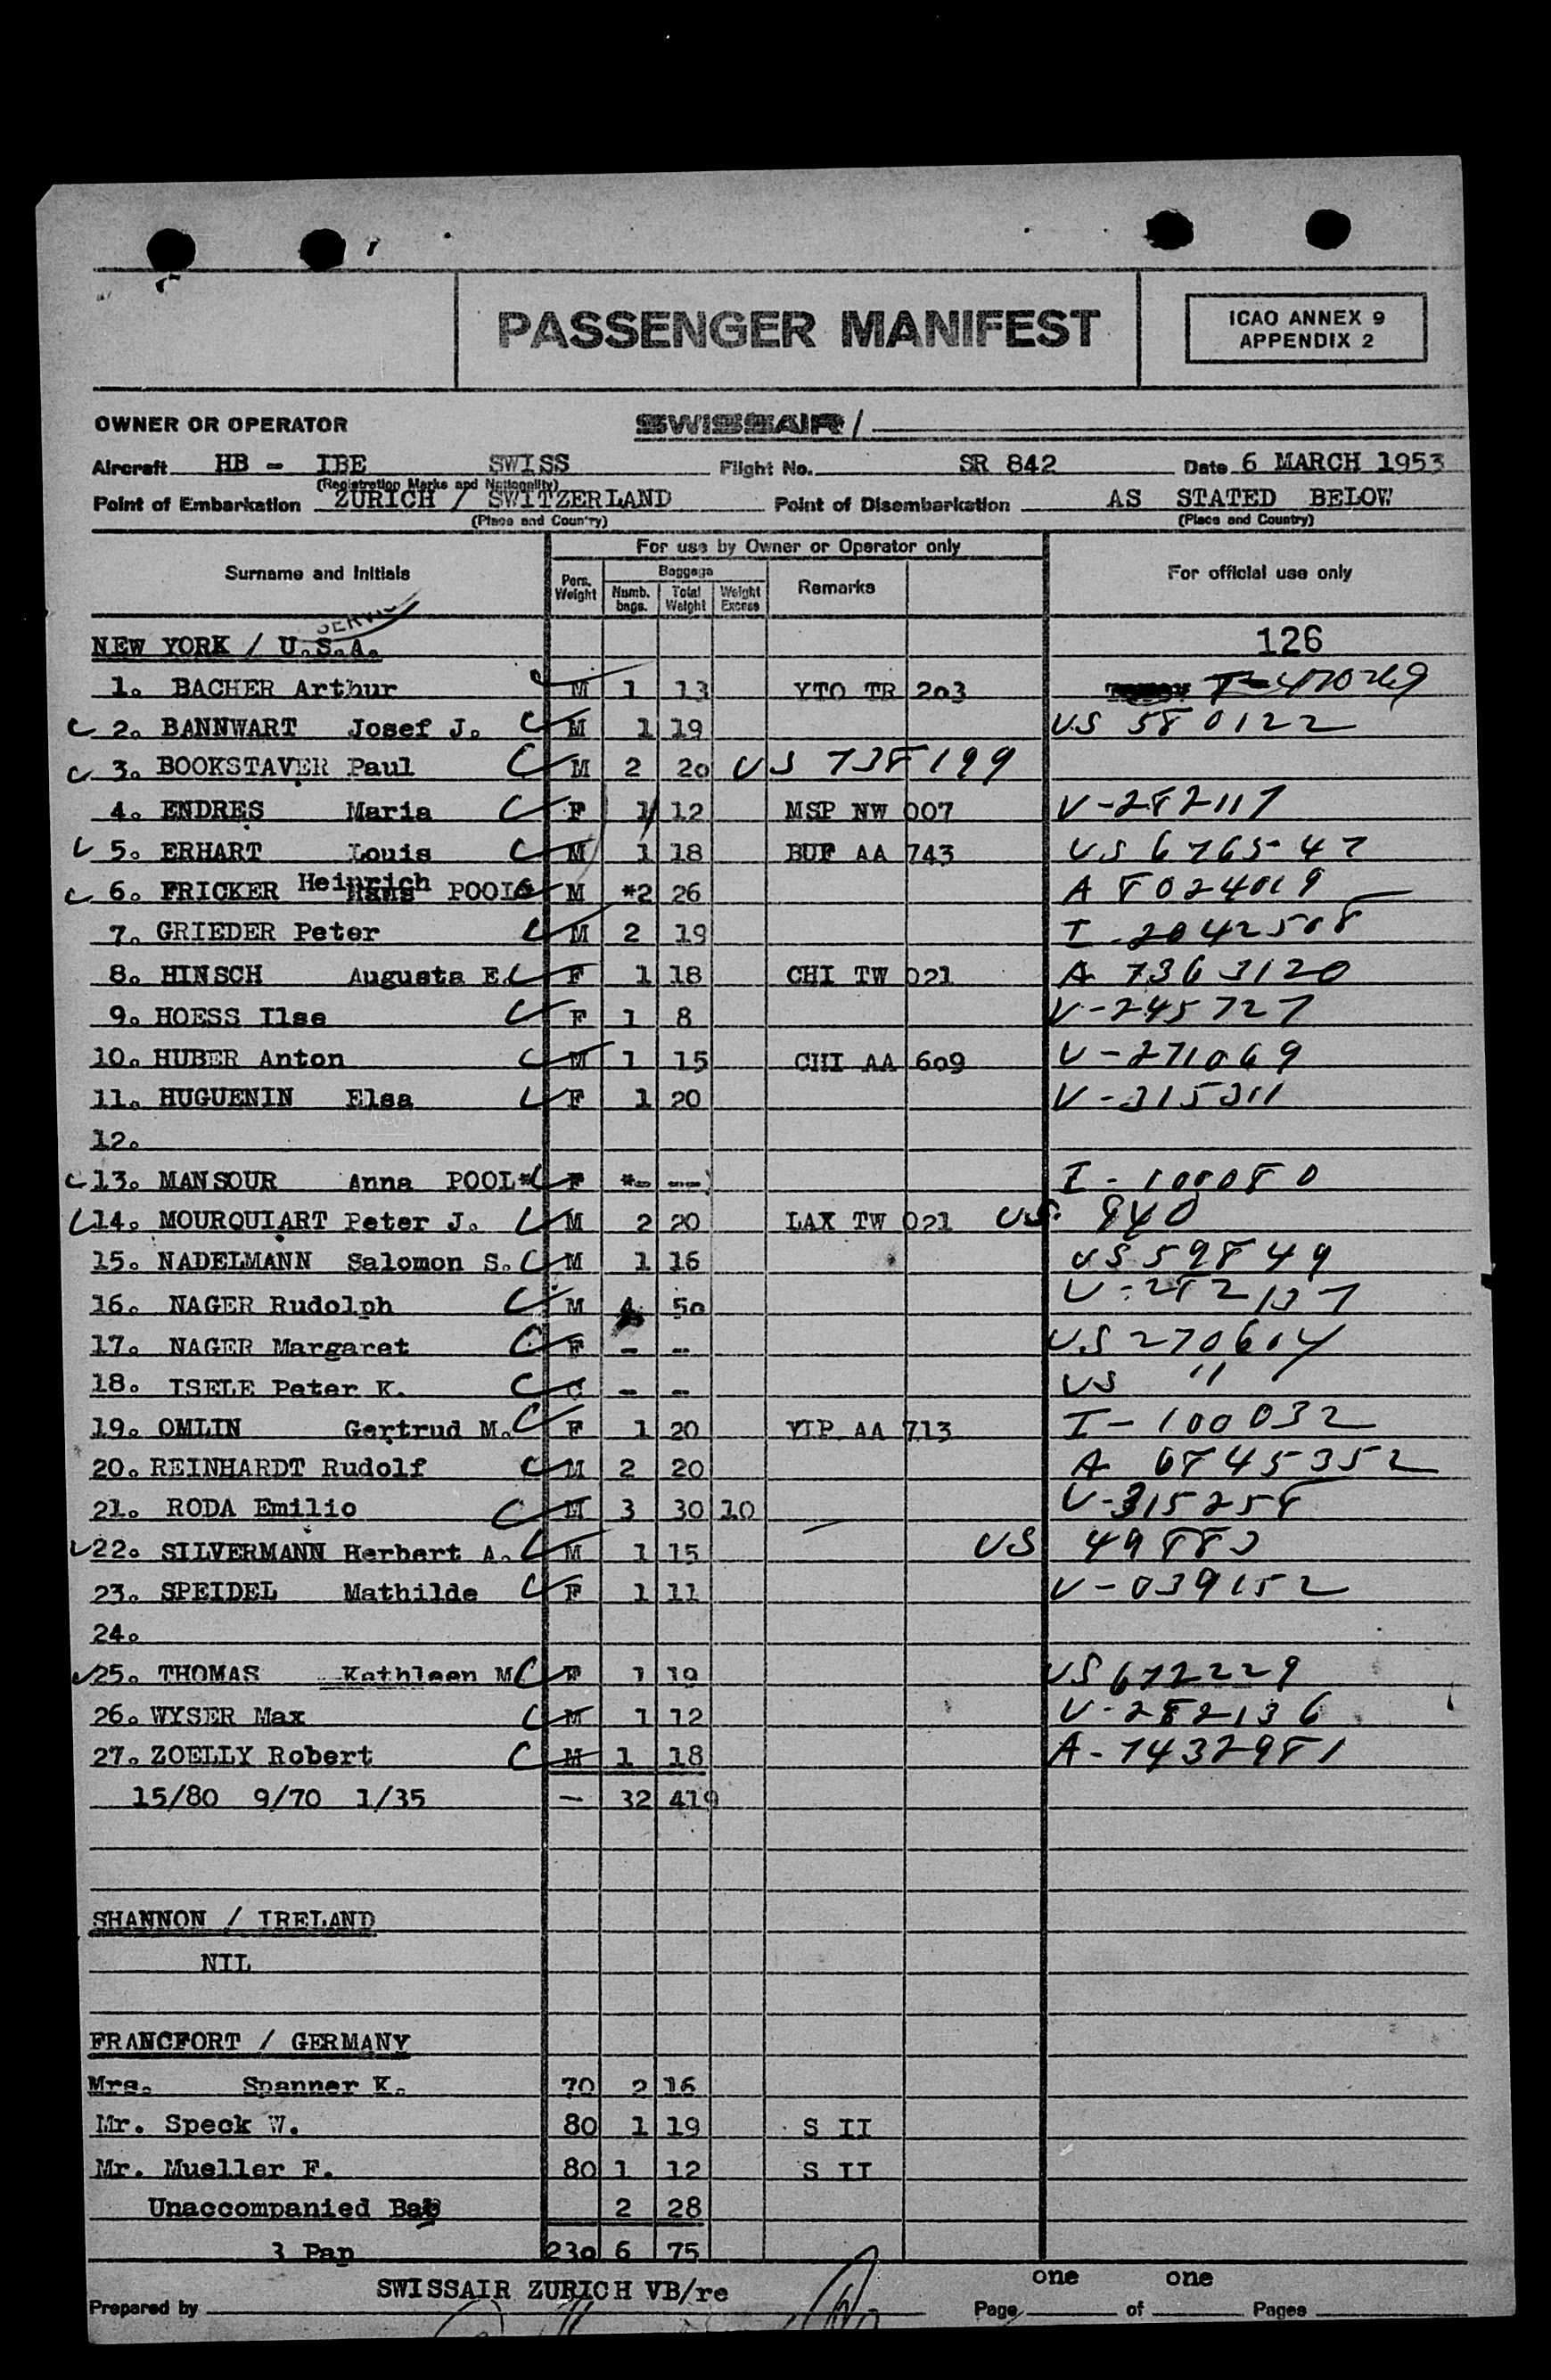 PASSENGER MANIFEST
ICAO ANNEX 9
APPENDIX 2
OWNER OR OPERATOR SWISSAIR/
Aircraft HB - IBE SWISS Flight No. SR 842 Date 6 MARCH 1953
(Registration Marks and Nationality)
Point of Embarkation ZURICH / SWITZERLAND Point of Disembarkation AS STATED BELOW
(Place and Country) (Place and Country)
For use by Owner or Operator only
Surname and Initials Pers. Weight Baggage Numb. bags. Total Weight Weight Excess Remarks For official use only
NEW YORK / U.S.A. 126
1. BACHER Arthur M 1 13 YTO TR 203 T-470269
2. BANNWART Josef J. M 1 19 US 580122
3. BOOKSTAVER Paul M 2 20 US 738199
4. ENDRES Maria F 1 12 MSP NW 007 V-282117
5. ERHART Louis M 1 18 BUF AA 743 US 676547
6. FRICKER Heinrich POOL* M *2 26 A 8024019
7. GRIEDER Peter M 2 19 I-2042508
8. HINSCH Augusta E. F 1 18 CHI TW 021 A 7363120
9. HOESS Ilse F 1 8 V-245727
10. HUBER Anton M 1 15 CHI AA 609 V-271069
11. HUGUENIN Elsa F 1 20 V-315311
12.
13. MANSOUR Anna POOL* F *- -- I-100080
14. MOURQUIART Peter J. M 2 20 LAX TW 021 US. 940
15. NADELMANN Salomon S. M 1 16 US 59849
16. NAGER Rudolph M 4 50 V-282137
17. NAGER Margaret F - - US 270614
18. ISELE Peter K. C - - US "
19. OMLIN Gertrud M. F 1 20 YIP AA 713 I-100032
20. REINHARDT Rudolf M 2 20 A 6845352
21. RODA Emilio M 3 30 10 V-315258
22. SILVERMANN Herbert A. M 1 15 US 49883
23. SPEIDEL Mathilde F 1 11 V-039152
24.
25. THOMAS Kathleen M F 1 19 US 672229
26. WYSER Max M 1 12 V-282136
27. ZOELLY Robert M 1 18 A-7432981
15/80 9/70 1/35 - 32 419
SHANNON / IRELAND
NIL
FRANCFORT / GERMANY
Mrs. Spanner K. 70 2 16
Mr. Speck W. 80 1 19 S II
Mr. Mueller F. 80 1 12 S II
Unaccompanied Bab 2 28
3 Pap 230 6 75
SWISSAIR ZURICH VB/re one one
Prepared by Page of Pages